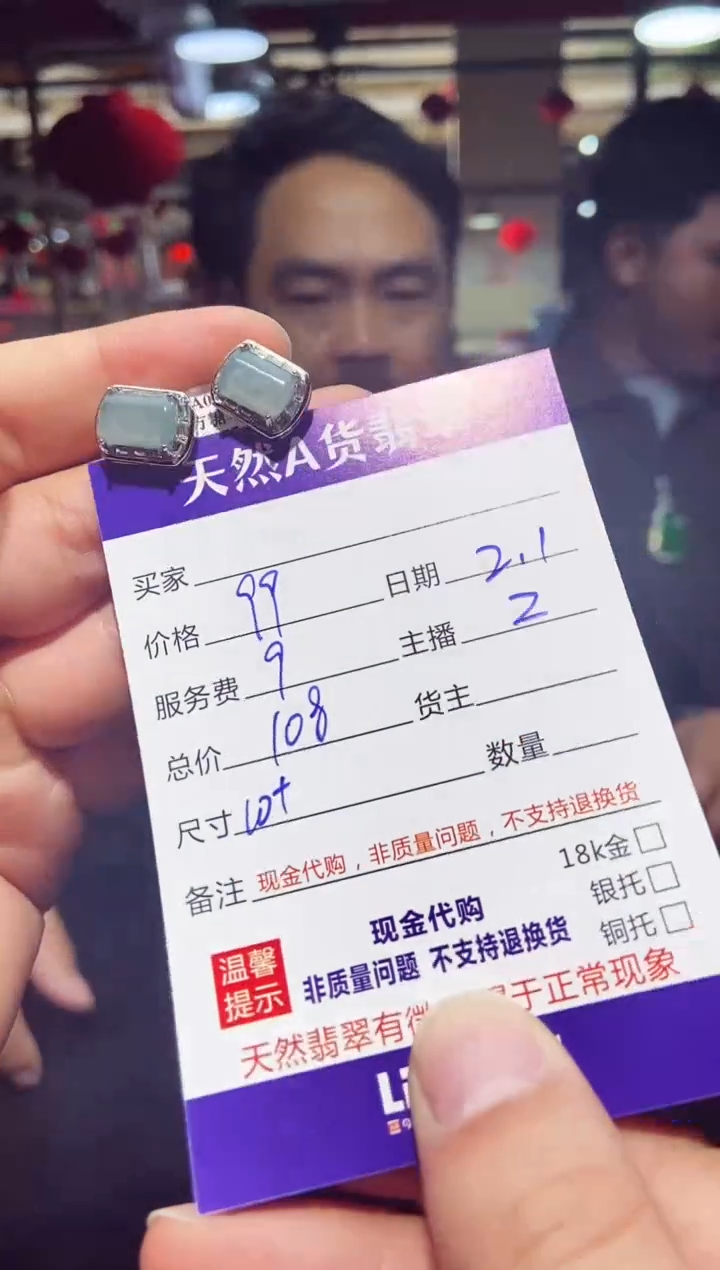 天然A货翡
买家
价格 99 日期 2.1
服务费 9 主播 2
总价 108 货主
尺寸 10+ 数量
备注 现金代购，非质量问题，不支持退换货
18k金
银托
铜托
温馨提示
现金代购
非质量问题 不支持退换货
天然翡翠有微 于正常现象